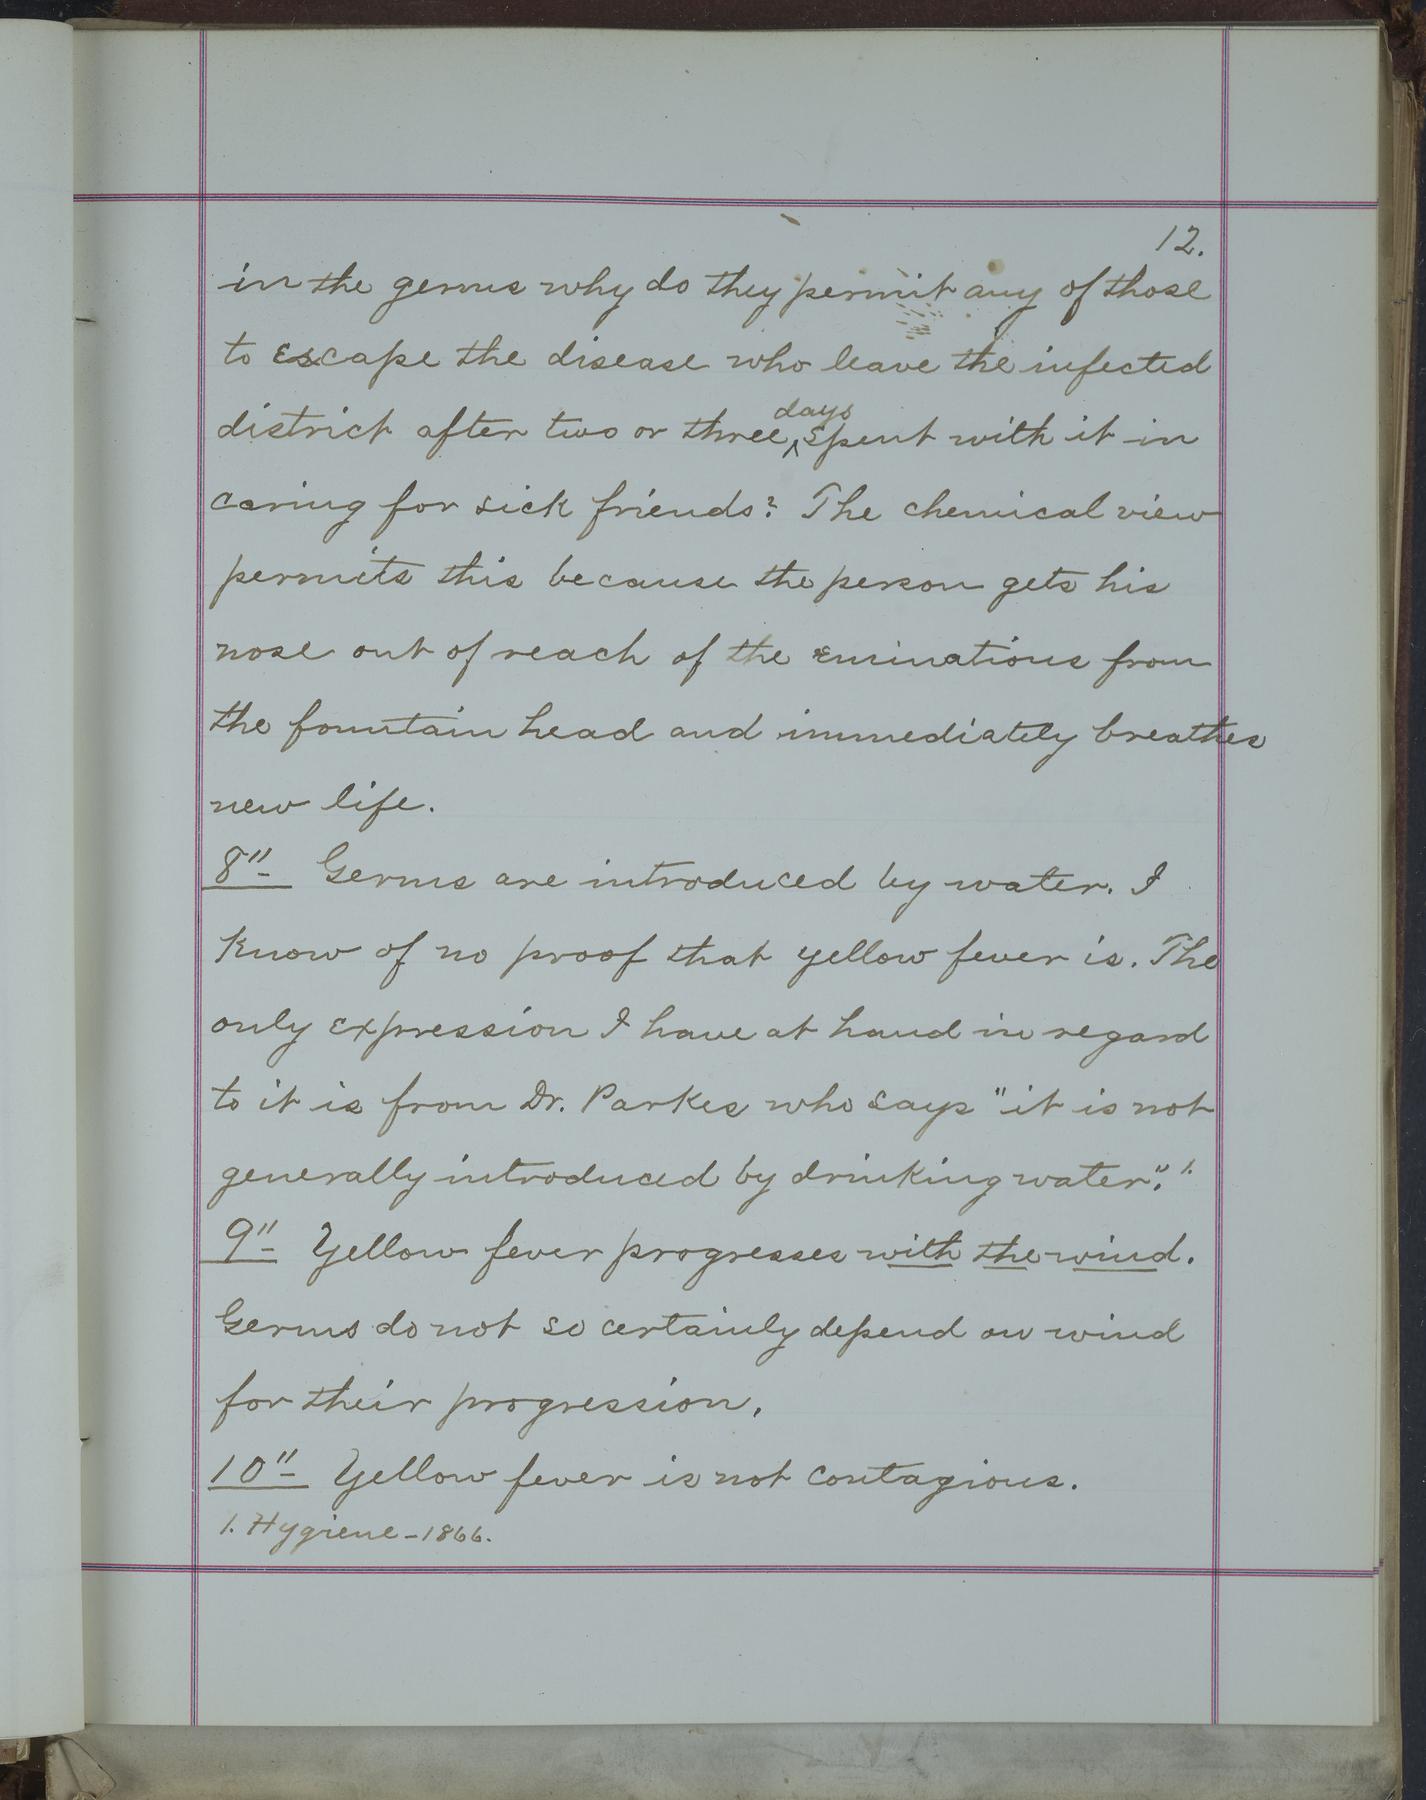 12.
in the germs why do they permit any of those
to escape the disease who leave the infected
district after two or three ^days spent with it in
caring for sick friends? The chemical view
permits this because the person gets his
nose out of reach of the eminations from
the fountain head and immediately breathes
new life.
8" Germs are introduced by water. I
know of no proof that yellow fever is. The
only expression I have at hand in regard
to it is from Dr. Parkes who says "it is not
generally introduced by drinking water." 1.
9" Yellow fever progresses with the wind.
Germs do not so certainly depend on wind
for their progression.
10" Yellow fever is not contagious.
1. Hygiene - 1866.